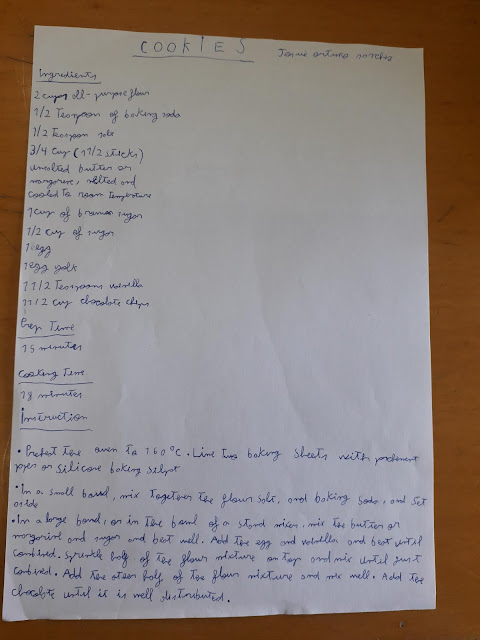 COOKIES
Ingredients
2 cups all-purpose flour
1/2 Teaspoon of baking soda
1/2 Teaspoon salt
3/4 cup (11/2 sticks)
unsalted butter or
margarine, melted and
cooled to room temperature
1 cup of brown sugar
1/2 cup of sugar
1 egg
1 egg yolk
11/2 Teaspoons vanilla
11/2 cup chocolate chips
Prep Time
15 minutes
Cooking Time
18 minutes
Instruction
• Preheat the oven to 160°C. Line two baking sheets with parchment
paper or silicone baking
• In a small bowl, mix together the flour salt, and baking soda, and set
aside
• In a large bowl, or in the bowl of a stand mixer, mix the butter or
margarine and sugar and beat well. Add the egg and vanilla and beat until
combined. Sprinkle half of the flour mixture on top and mix until just
combined. Add the other half of the flour mixture and mix well. Add the
chocolate until it is well distributed.